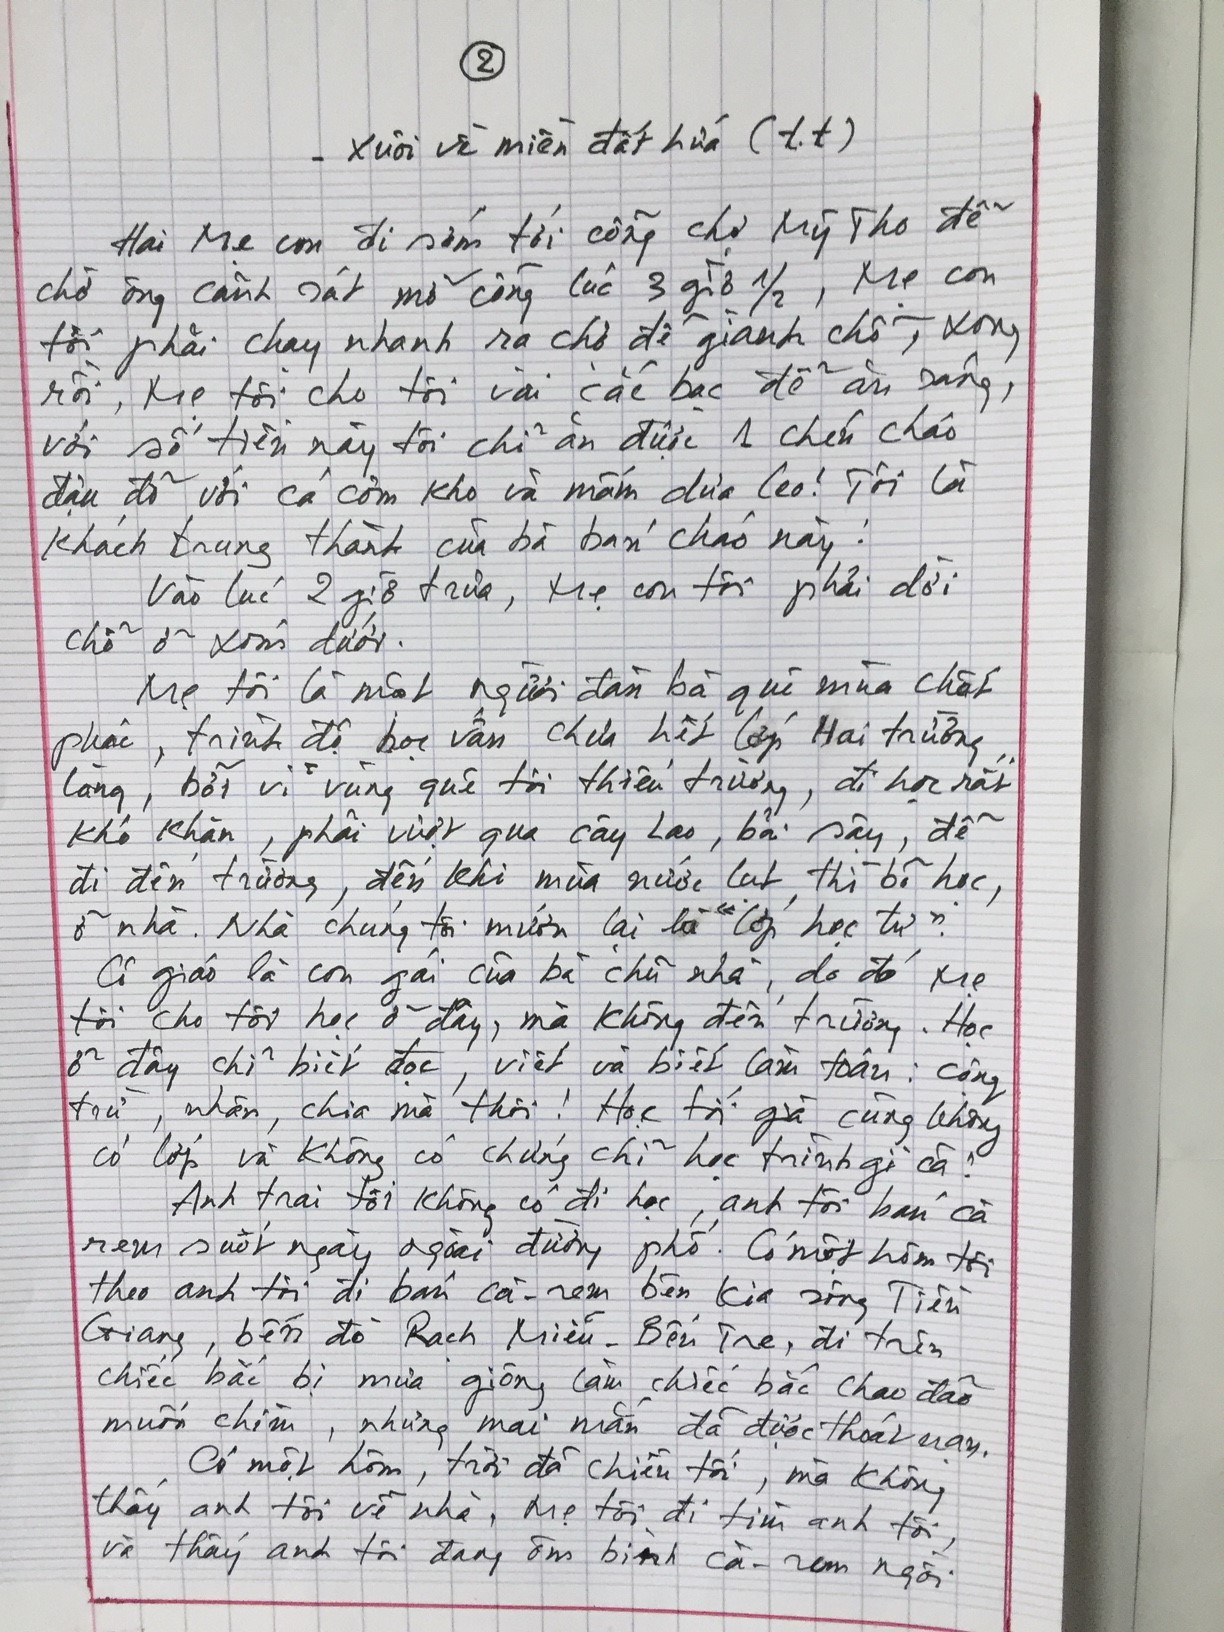 2
- Xuôi về miền đất hứa (t.t)
Hai Mẹ con đi sớm tới cổng chợ Mỹ Tho để
chờ ông cảnh sát mở cổng lúc 3 giờ 1/2, Mẹ con
tôi phải chạy nhanh ra chợ để giành chỗ, xong
rồi, Mẹ tôi cho tôi vài cắc bạc để ăn sáng,
với số tiền này tôi chỉ ăn được 1 chén cháo
đậu đỏ với cá cơm kho và mắm dưa leo! Tôi là
khách trung thành của bà bán cháo này!
Vào lúc 2 giờ trưa, Mẹ con tôi phải dời
chỗ ở xóm dưới.
Mẹ tôi là một người đàn bà quê mùa chất
phác, trình độ học vấn chưa hết lớp Hai trường
làng, bởi vì vùng quê tôi thiếu trường, đi học rất
khó khăn, phải vượt qua cây lao, bãi sậy, để
đi đến trường, đến khi mùa nước lụt thì bỏ học,
ở nhà. Nhà chúng tôi mướn lại là "lớp học tư".
Cô giáo là con gái của bà chủ nhà, do đó Mẹ
tôi cho tôi học ở đây, mà không đến trường. Học
ở đây chỉ biết đọc, viết và biết làm toán: cộng
trừ, nhân, chia mà thôi! Học tới già cũng không
có lớp và không có chứng chỉ học trình gì cả!
Anh trai tôi không có đi học, anh tôi bán cà
rem suốt ngày ngoài đường phố. Có một hôm tôi
theo anh tôi đi bán cà-rem bên kia sông Tiền
Giang, bến đò Rạch Miễu - Bến Tre, đi trên
chiếc bắc bị mưa giông làm chiếc bắc chao đảo
muốn chìm, nhưng mai mắn đã được thoát nạn.
Có một hôm, trời đã chiều tối, mà không
thấy anh tôi về nhà, Mẹ tôi đi tìm anh tôi,
và thấy anh tôi đang ôm bình cà-rem ngồi